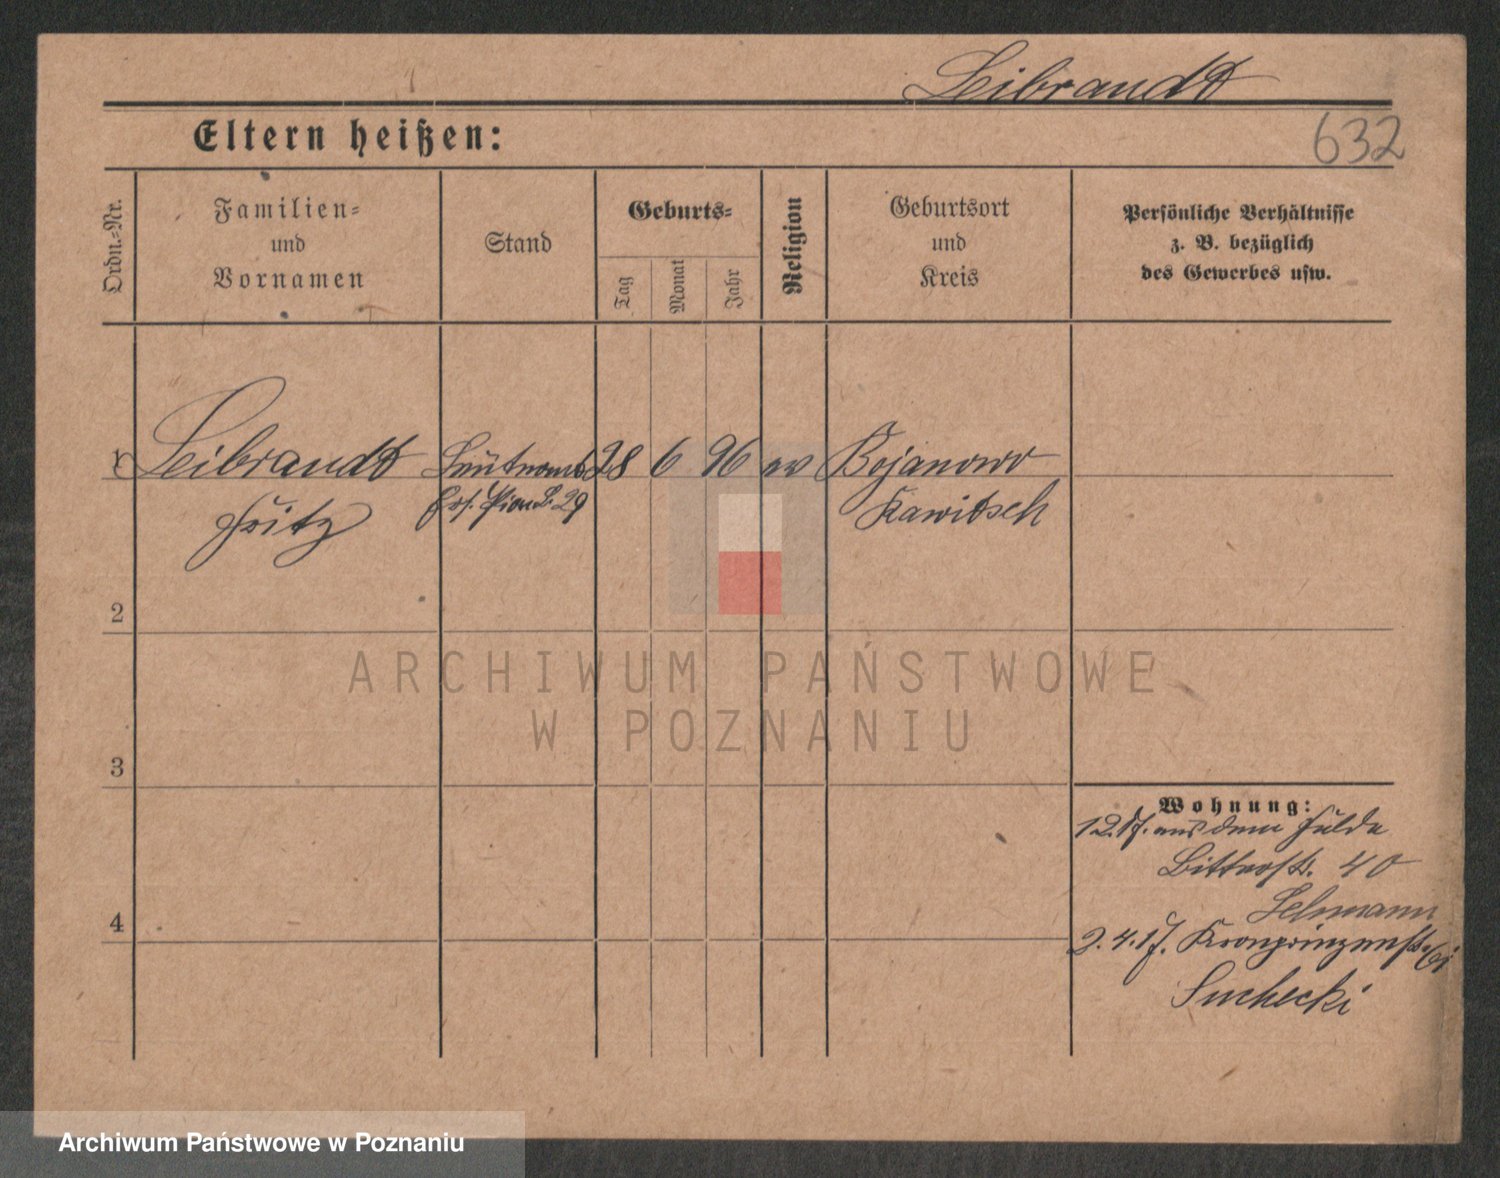 Leibrandt
Eltern heißen:
632
Ordn.-Nr.
Familien-
und
Vornamen
Stand
Geburts-
Tag
Monat
Jahr
Religion
Geburtsort
und
Kreis
Persönliche Verhältnisse
z. B. bezüglich
des Gewerbes usw.
1 Leibrandt Leutnant 28 6 96 ev Bojanowo
Fritz Ers. Pion B. 29 Rawitsch
2
ARCHIWUM PAŃSTWOWE
W POZNANIU
3
Wohnung:
12. 17. aus dem Felde
Bitterstr. 40
Lehmann
4
2. 4. 17. Kronprinzenstr.
Suchecki
Archiwum Państwowe w Poznaniu